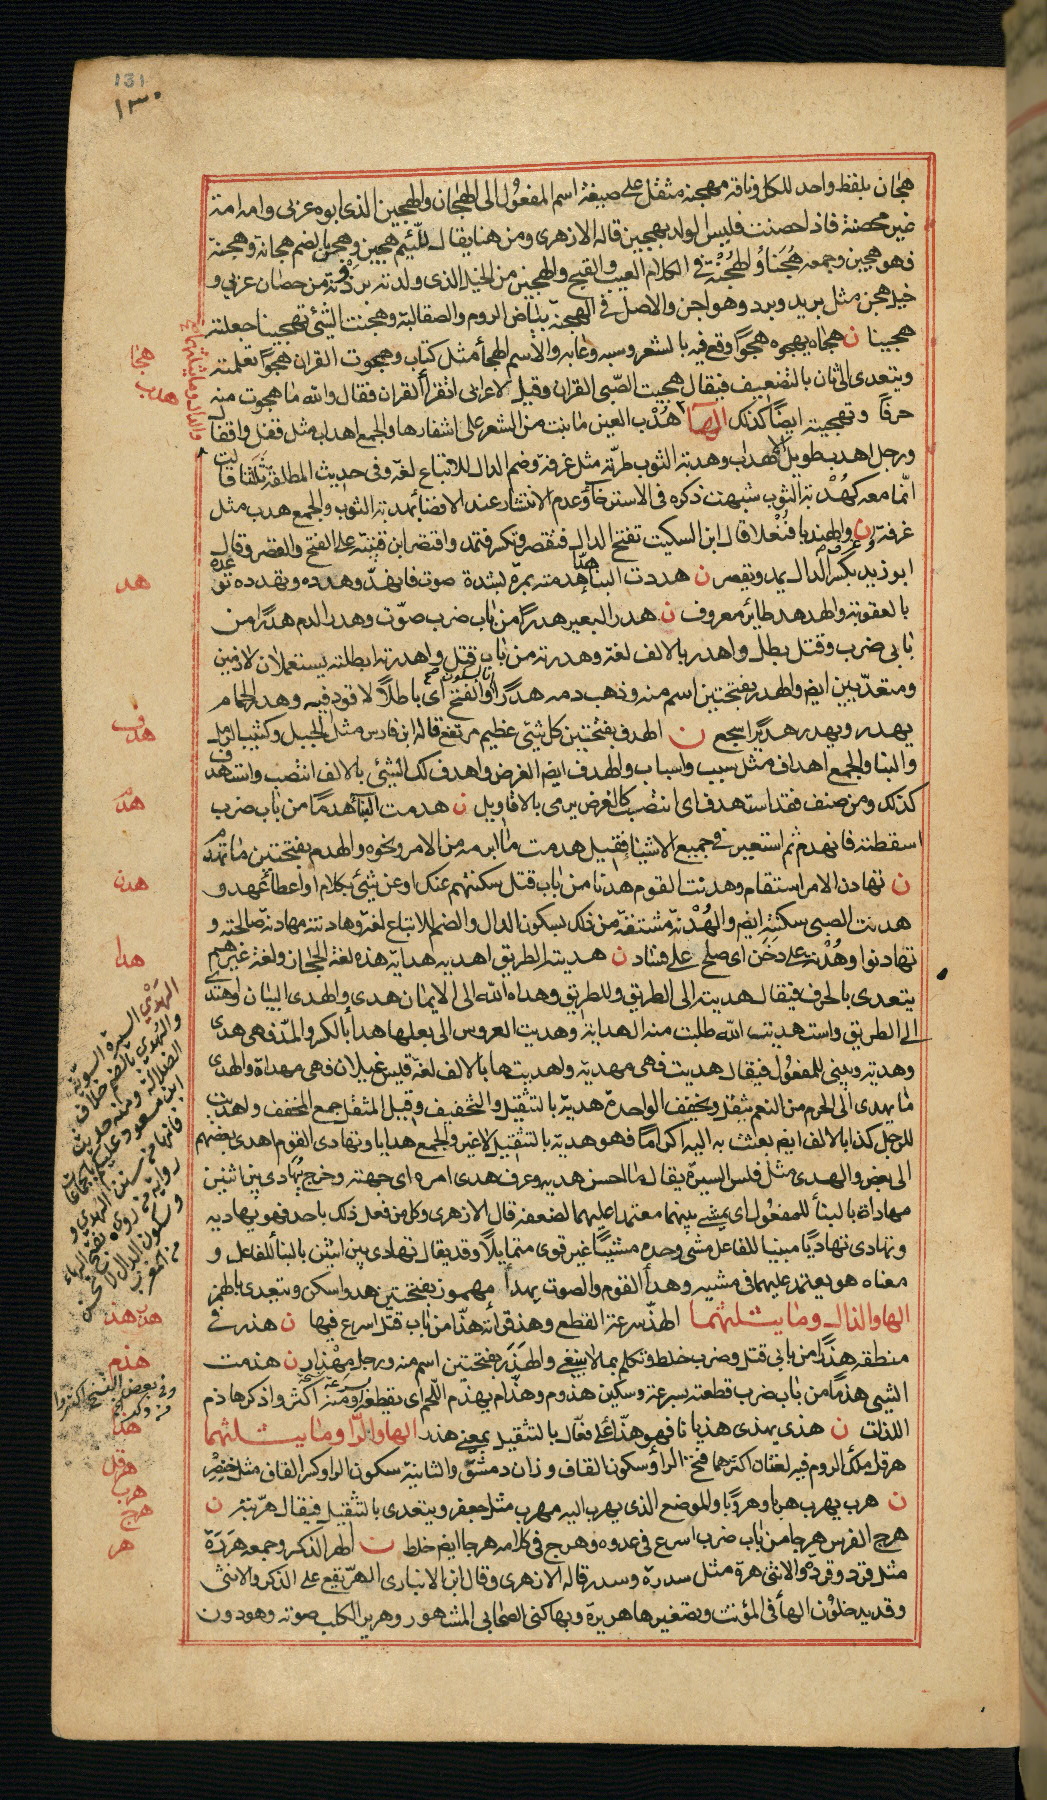 131
١٣٠
هجان بلفظ واحد للكل وناقة مهجنة مثقل على صيغة اسم المفعول الى الهجان والهجين الذى ابوه عربى وامه امة
غير محصنة فاذا حصنت فليس الولد بهجين قاله الازهرى ومن هنا يقال للئيم هجين وهجن بالضم هجانة وهجنة
فهو هجين وجمعه هُجَناء والهُجْنة فى الكلام العيب والقبح والهجين من الخيل الذى ولدته برذونة من حصان عربى و
خيل هجن مثل بريد وبرد وهواجن والاصل فى الهجنة بياض الروم والصقالبة وهجنت الشئ تهجينا جعلته
هجينا ن هجاه يهجوه هجوًا وقع فيه بالشعر وسبه وعابه والاسم الهجاء مثل كتاب وهجوت القران هجوًا تعلمته
ويتعدى الى ثان بالتضعيف فيقال هجيت الصبى القران وقيل لاعرابى اتقرأ القران فقال والله ما هجوت منه
حرفًا وتهجيته ايضًا كذلك الهاء هُدْب العين ما نبت من الشعر على اشفارها والجمع اهداب مثل قفل واقفال
والدال وما يثلثهما
ورجل اهدب طويل الاهداب وهدبة الثوب طرّته مثل غرفة وضم الدال للاتباع لغة وفى حديث المطلقة ثلثا قالت
انما معه كهُدْبة الثوب شبهت ذكره فى الاسترخاء وعدم الانتشار عند الافضاء بهدبة الثوب والجمع هدب مثل
غرفة وغرف ن والهندبا فنعلا قال ابن السكيت تفتح الدال فتقصر وتكسر فتمد واقتصر ابن قتيبة على الفتح والقصر وقال
ابو زيد بكسر الدال يمد ويقصر ن هددت البناء هدّا هدمته بمرة لشدة صوت فانهدّ وهدده وتهدده توعّده
بالعقوبة والهدهد طائر معروف ن هدر البعير هدرًا من باب ضرب صوّت وهدر الدم هدرًا من
بابى ضرب وقتل بطل واهدر بالالف لغة وهدرته من باب قتل واهدرته ابطلته يستعملان لازمين
ومتعديين ايضا والهدر بفتحتين اسم منه وذهب دمه هدرًا بالسكون والفتح اى باطلًا لا قود فيه وهدر الحمام
يهدر ويهدر هديرًا سجع ن الهدف بفتحتين كل شئ عظيم مرتفع قاله ابن فارس مثل الجبل وكثيب الرمل
والبناء والجمع اهداف مثل سبب واسباب والهدف ايضا الغرض واهدف لك الشئ بالالف انتصب واستهدف
كذلك ومن صنف فقد استهدف اى انتصب كالغرض يرمى بالاقاويل ن هدمت البناء هدمًا من باب ضرب
اسقطته فانهدم ثم استعير فى جميع الاشياء فقيل هدمت ما ابرمه من الامر ونحوه والهدم بفتحتين ما تهدم
ن تهادن الامر استقام وهدنت القوم هدنا من باب قتل سكنتهم عنك او عن شئ بكلام او اعطاء عهد و
هدنت الصبى سكنته ايضا والهُدْنة مشتقة من ذلك بسكون الدال والضم للاتباع لغة وهادنته مهادنة صالحته و
تهادنوا وهُدْنة على دخن اى صلح على فساد ن هديته الطريق اهديه هداية هذه لغة الحجاز ولغة غيرهم
يتعدى بالحرف فيقال هديته الى الطريق وللطريق وهداه الله الى الايمان هدى والهدى البيان واهتدى
الى الطريق واستهديت الله طلبت منه الهداية وهديت العروس الى بعلها هداء بالكسر والمد فهى هدى
وهدية ويبنى للمفعول فيقال هديت فهى مهدية واهديتها بالالف لغة قيس عيلان فهى مهداة والهدى
ما يهدى الى الحرم من النعم يثقل ويخفف الواحدة هدية بالتثقيل والتخفيف وقيل المثقل جمع المخفف واهديت
للرجل كذا بالالف ايضا بعثت به اليه اكرامًا فهو هدية بالتثقيل لا غير والجمع هدايا وتهادى القوم اهدى بعضهم
الى بعض والهدى مثل فلس السيرة يقال ما احسن هديه وعرف هدى امره اى جهته وخرج يهادى بين اثنين
مهاداة بالبناء للمفعول اى يمشى بينهما معتمدا عليهما لضعفه قال الازهرى وكل من فعل ذلك باحد فهو يهاديه
وتهادى تهاديًا مبنيا للفاعل مشى وحده مشيًا غير قوى متمايلًا وقد يقال تهادى بين اثنين بالبناء للفاعل و
معناه هو يعتمد عليهما فى مشيه وهدأ القوم والصوت يهدأ مهموز بفتحتين هدوا سكن ويتعدى بالهمز
الها والذال وما يثلثهما الهذّ سرعة القطع وهذ قرأته هذّا من باب قتل اسرع فيها ن هذر فى
منطقه هذرًا من بابى قتل وضرب خلط وتكلم بما لا ينبغى والهَذَر بفتحتين اسم منه ورجل مِهْذار ن هذمت
الشئ هذمًا من باب ضرب قطعته بسرعة وسكين هذوم وهذّام يهذم اللحم اى يقطعه بسرعة ومنه اكثروا ذكر هاذم
اللذات ن هذى يهذى هذيانا فهو هذّاء على فعّال بالتثقيل بمعنى هذر الها والرا وما يثلثهما
هرقل ملك الروم فيه لغتان اكثرهما فتح الراء وسكون القاف وزان دمشق والثانية سكون الرا وكسر القاف مثل خنصر
ن هرب يهرب هربا وهروبا والموضع الذى يهرب اليه مهرب مثل جعفر ويتعدى بالتثقيل فيقال هرّبته ن
هرج الفرس هرجا من باب ضرب اسرع فى عدوه وهرج فى كلامه هرجا ايضا خلط ن الهر الذكر وجمعه هررة
مثل قرد وقردة والانثى هرة مثل سدرة وسدر قاله الازهرى وقال ابن الانبارى الهر يقع على الذكر والانثى
وقد يدخلون الهاء فى المؤنث وتصغيرها هريرة وبها كنى الصحابى المشهور وهرير الكلب صوته وهو دون
هجا
هدب
هد
هدف
هدم
هدن
هدا
الهَدْى السيرة السوية
والهُدى بالضم خلاف
الضلالة ومنه حديث
ابن مسعود عليكم بالجماعات
فانها من سنن الهدى و
رواية من روى بفتح الهاء
وسكون الدال لا تحسن
من المغرب
هذر هذ
هذم
وفى بعض النسخ اكثروا
هذا
هرقل
هرب
هرج
هر